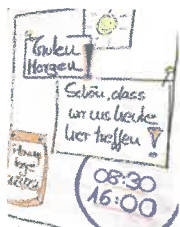 Guten
Morgen!
Schön, dass
wir uns heute
hier treffen!
08:30
16:00